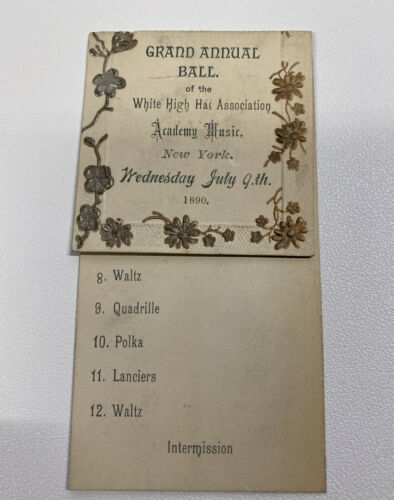 GRAND ANNUAL
BALL.
of the
White High Hat Association
Academy Music,
New York.
Wednesday July 9.th.
1890.
8. Waltz
9. Quadrille
10. Polka
11. Lanciers
12. Waltz
Intermission